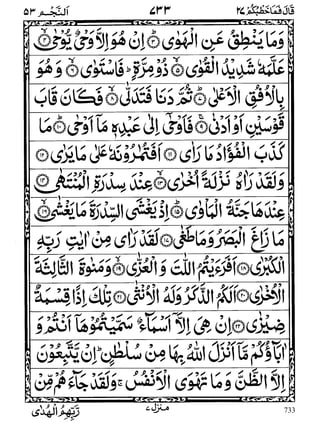 قَالَ فَمَا خَطْبُكُمْ ٢٧ ٧٣٣ اَلنَّجْم ٥٣
وَمَا يَنْطِقُ عَنِ الْهَوٰى ۝٣ اِنْ هُوَ اِلَّا وَحْىٌ يُّوْحٰى ۝٤
عَلَّمَهٗ شَدِيْدُ الْقُوٰى ۝٥ ذُوْ مِرَّةٍ فَاسْتَوٰى ۝٦ وَهُوَ
بِالْاُفُقِ الْاَعْلٰى ۝٧ ثُمَّ دَنَا فَتَدَلّٰى ۝٨ فَكَانَ قَابَ
قَوْسَيْنِ اَوْ اَدْنٰى ۝٩ فَاَوْحٰٓى اِلٰى عَبْدِهٖ مَآ اَوْحٰى ۝١٠ مَا
كَذَبَ الْفُؤَادُ مَا رَاٰى ۝١١ اَفَتُمٰرُوْنَهٗ عَلٰى مَا يَرٰى ۝١٢
وَلَقَدْ رَاٰهُ نَزْلَةً اُخْرٰى ۝١٣ عِنْدَ سِدْرَةِ الْمُنْتَهٰى ۝١٤
عِنْدَهَا جَنَّةُ الْمَاْوٰى ۝١٥ اِذْ يَغْشَى السِّدْرَةَ مَا يَغْشٰى ۝١٦
مَا زَاغَ الْبَصَرُ وَمَا طَغٰى ۝١٧ لَقَدْ رَاٰى مِنْ اٰيٰتِ رَبِّهِ
الْكُبْرٰى ۝١٨ اَفَرَءَيْتُمُ اللّٰتَ وَالْعُزّٰى ۝١٩ وَمَنٰوةَ الثَّالِثَةَ
الْاُخْرٰى ۝٢٠ اَلَكُمُ الذَّكَرُ وَلَهُ الْاُنْثٰى ۝٢١ تِلْكَ اِذًا قِسْمَةٌ
ضِيْزٰى ۝٢٢ اِنْ هِىَ اِلَّآ اَسْمَآءٌ سَمَّيْتُمُوْهَآ اَنْتُمْ وَ
اٰبَآؤُكُمْ مَّآ اَنْزَلَ اللّٰهُ بِهَا مِنْ سُلْطٰنٍ ؕ اِنْ يَّتَّبِعُوْنَ
اِلَّا الظَّنَّ وَمَا تَهْوَى الْاَنْفُسُ ۚ وَلَقَدْ جَآءَهُمْ مِّنْ
رَّبِّهِمُ الْهُدٰى منزل ٧ 733